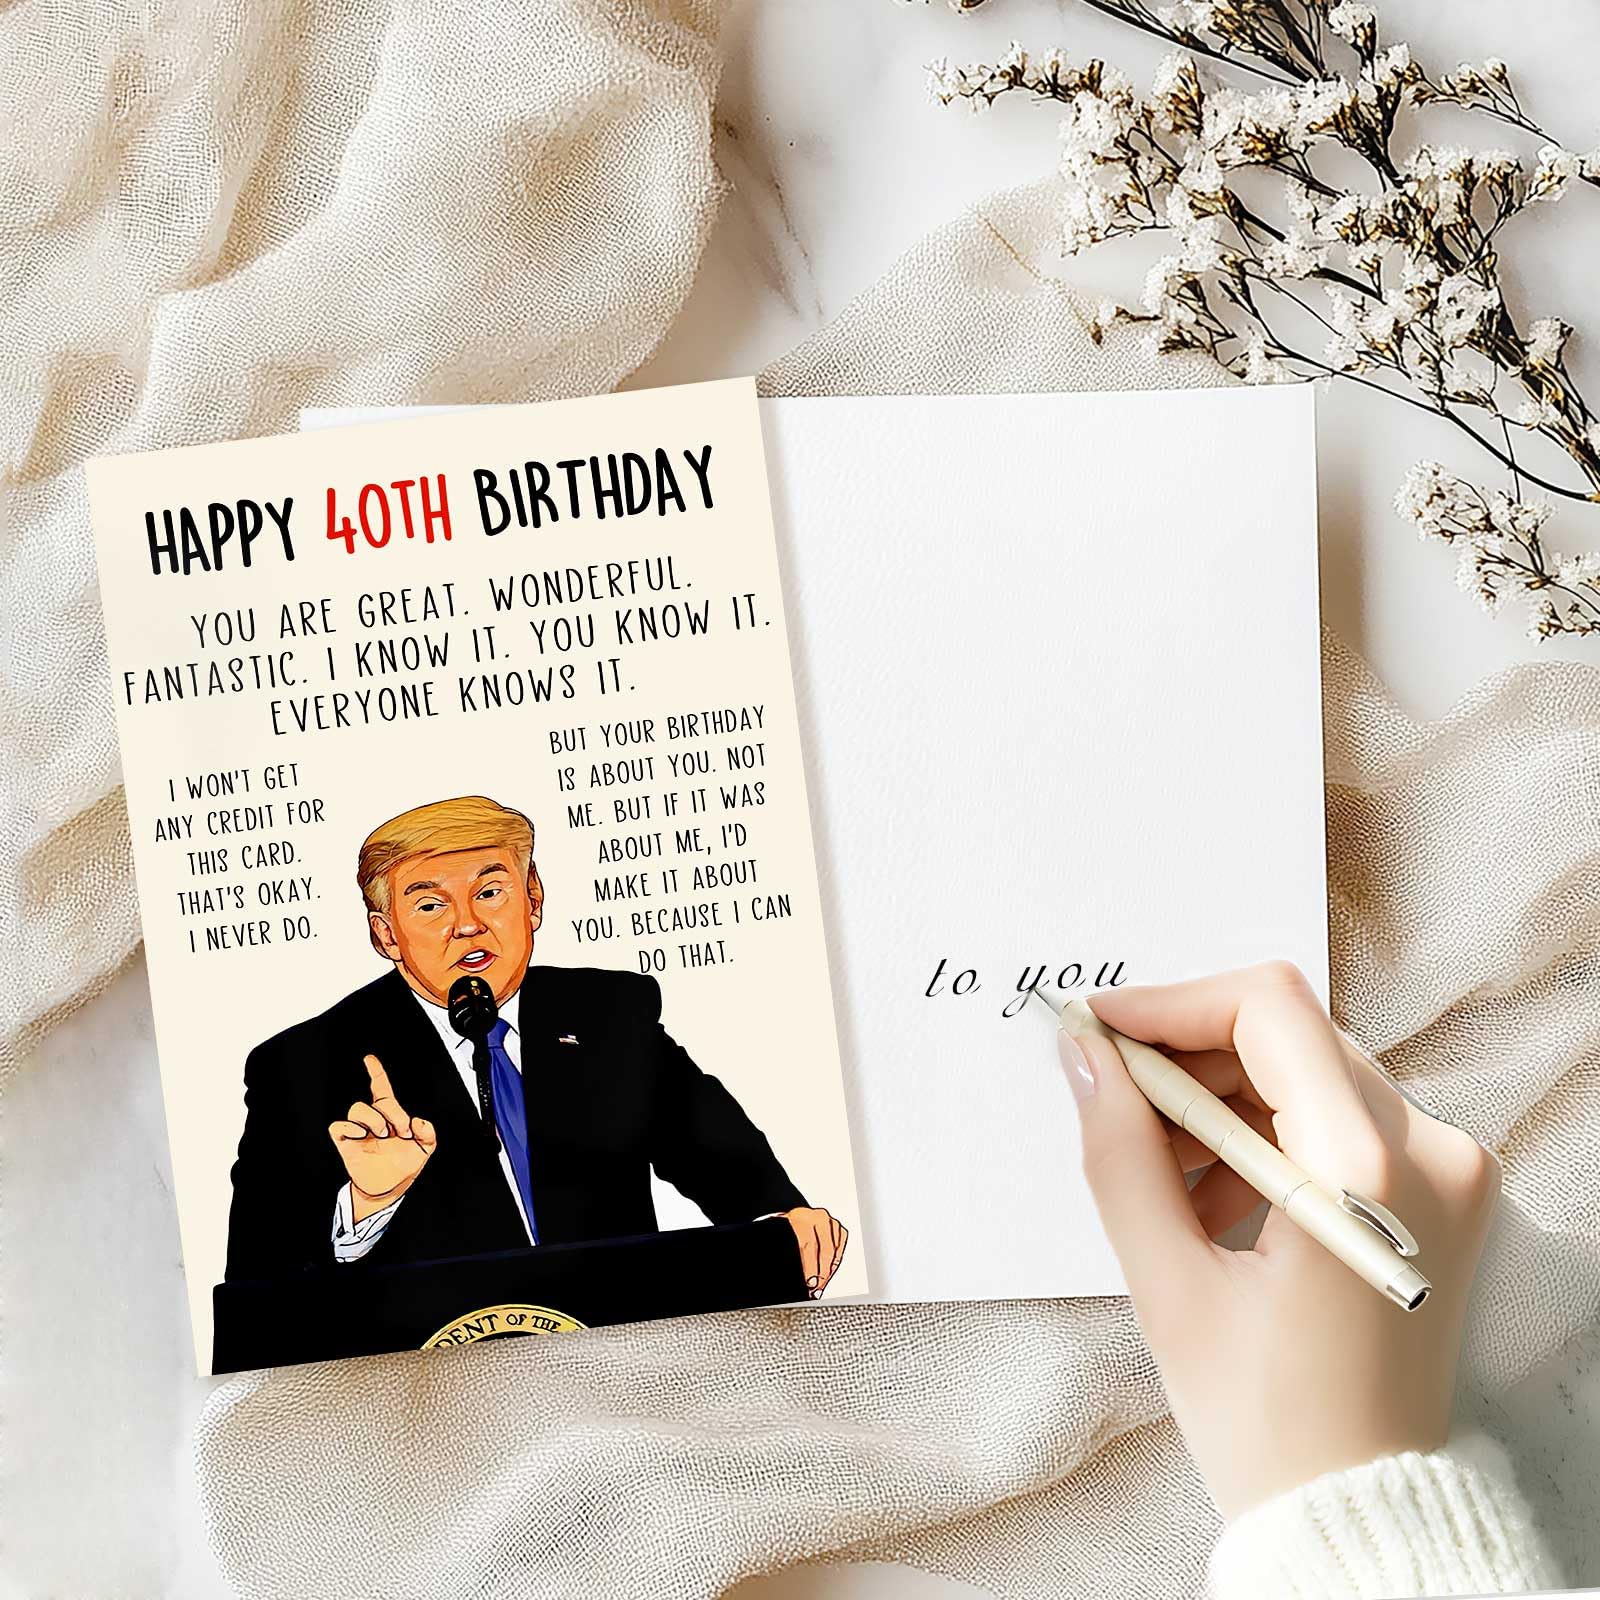 HAPPY 40TH BIRTHDAY
YOU ARE GREAT. WONDERFUL.
FANTASTIC. I KNOW IT. YOU KNOW IT.
EVERYONE KNOWS IT.
I WON'T GET
ANY CREDIT FOR
THIS CARD.
THAT'S OKAY.
I NEVER DO.
BUT YOUR BIRTHDAY
IS ABOUT YOU. NOT
ME. BUT IF IT WAS
ABOUT ME, I'D
MAKE IT ABOUT
YOU. BECAUSE I CAN
DO THAT.
DENT OF THE
to you